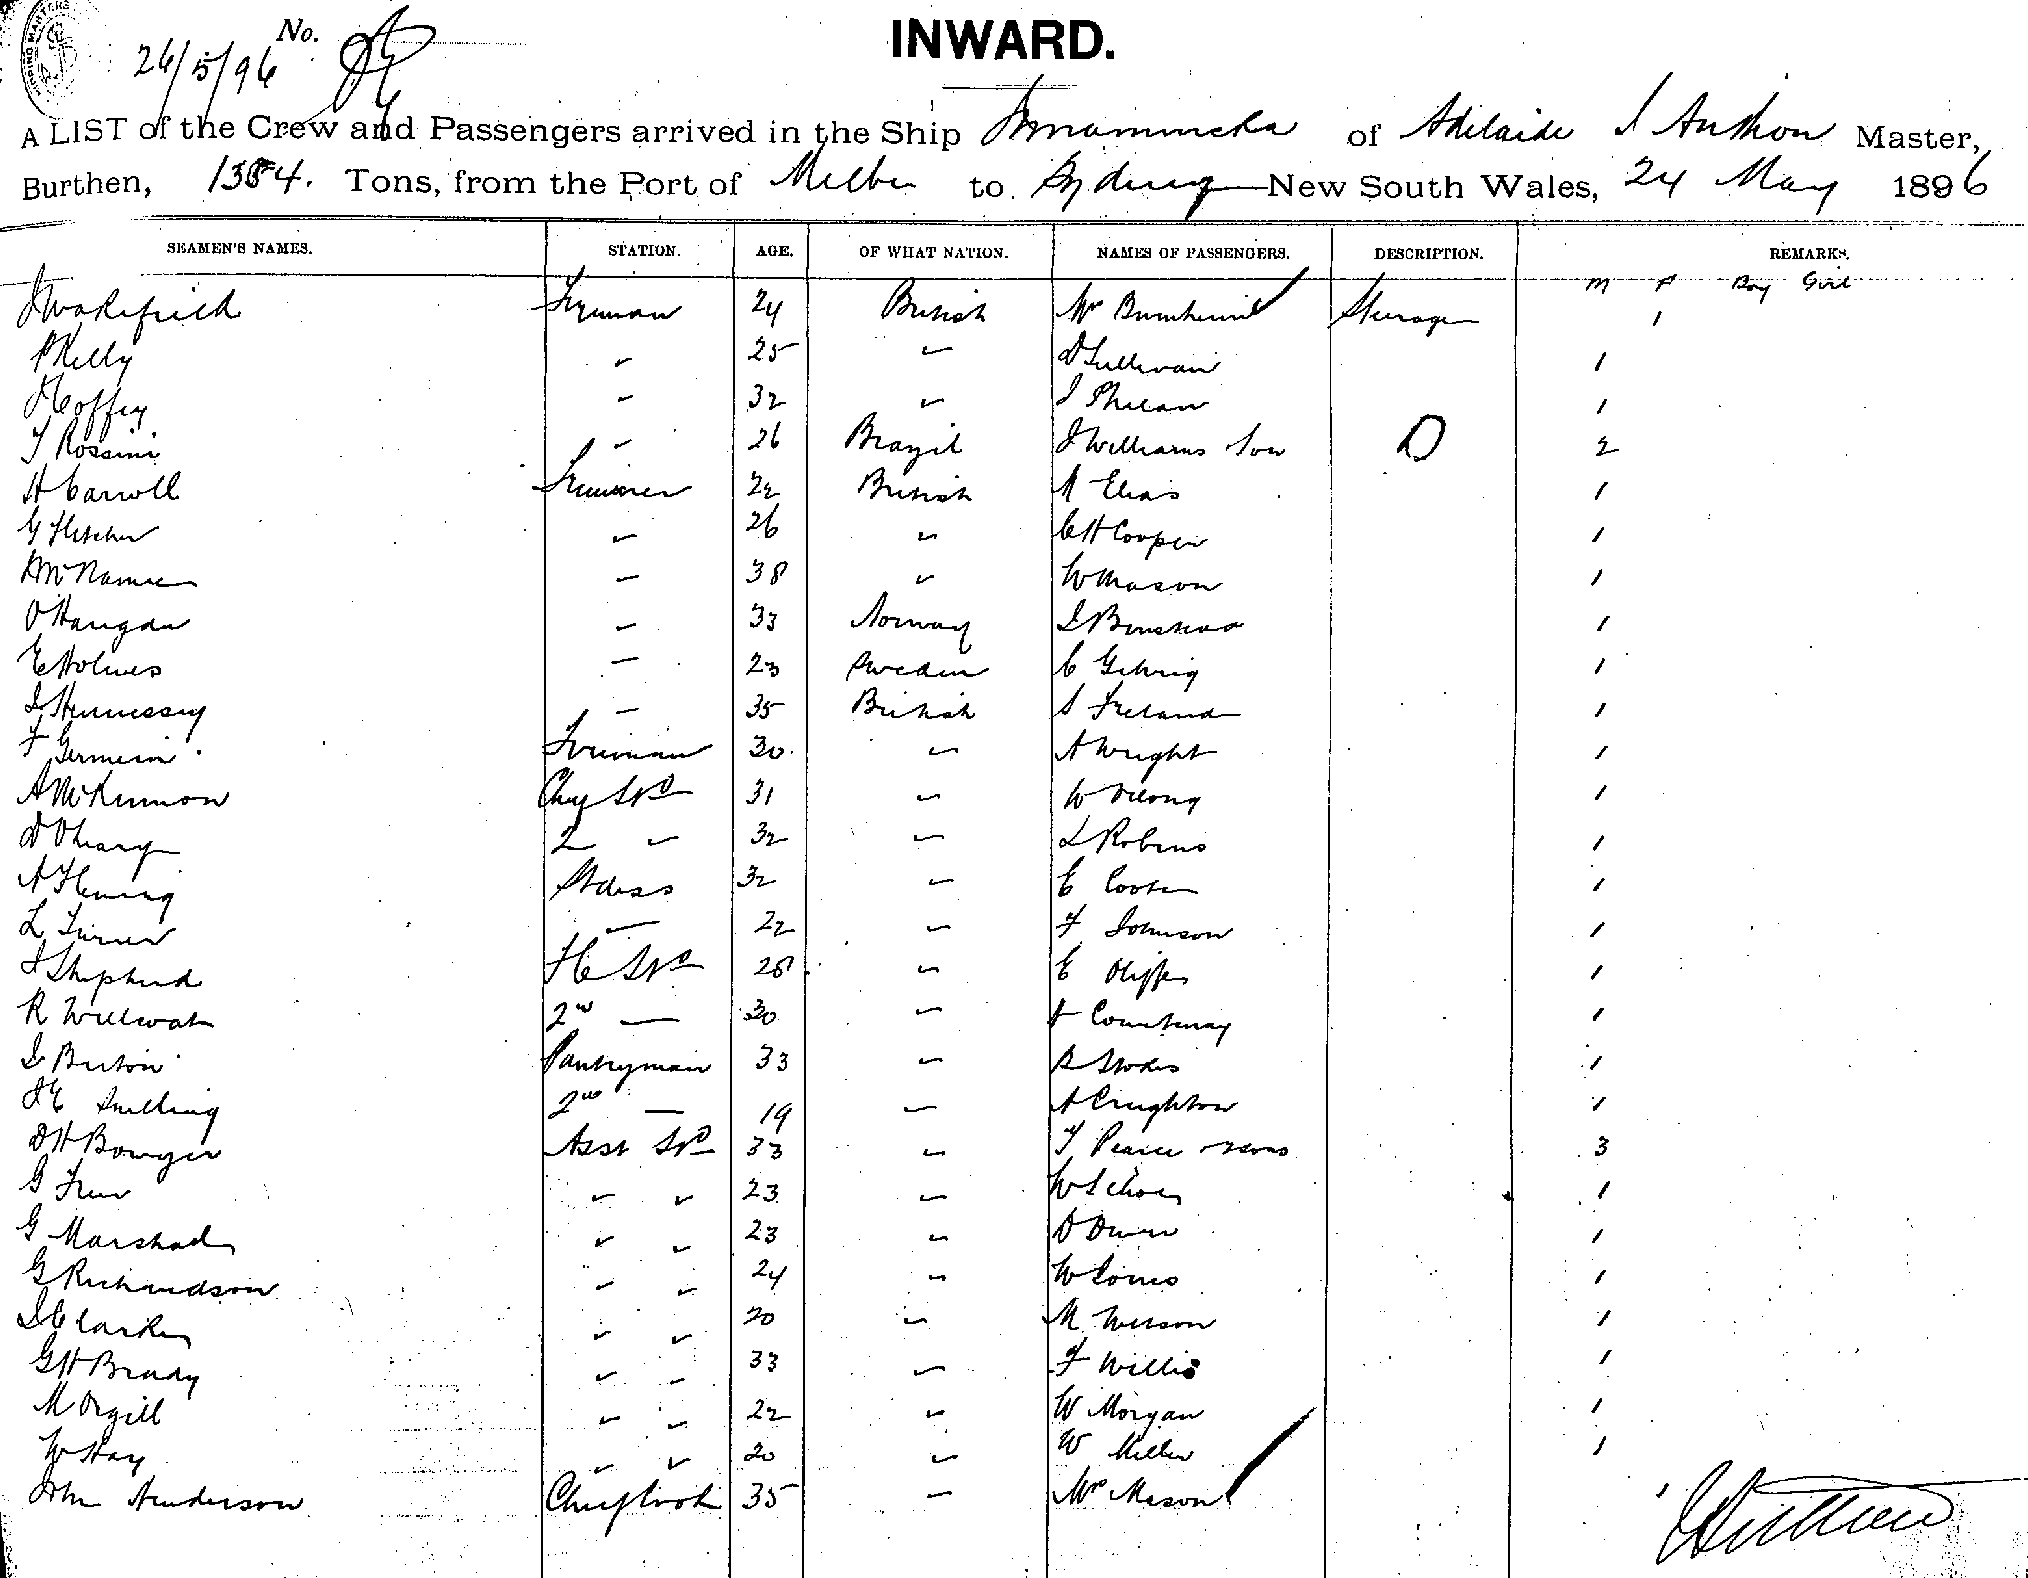 SHIPPING MASTERS
No.
26/5/96
INWARD.
A LIST of the Crew and Passengers arrived in the Ship Innamincka of Adelaide J Anthon Master,
Burthen, 1384. Tons, from the Port of Melbn to Sydney New South Wales, 24 May 1896
SEAMEN'S NAMES. STATION. AGE. OF WHAT NATION. NAMES OF PASSENGERS. DESCRIPTION. REMARKS.
M F Boy Girl
J Wakefield Fireman 24 British Mrs Steerage 1
P Kelly " 25 " D Sullivan 1
J Coffey " 32 " J Phelan 1
T Rossini " 26 Brazil J Williams Son D 2
H Carroll Trimmer 22 British A Elias 1
G Fletcher " 26 " C H Cooper 1
McNamee " 38 " W Mason 1
O Haugan " 33 Norway J 1
E Holmes " 23 Sweden C Gehrig 1
J Hennessy " 35 British S Ireland 1
F Germein Foreman 30 " A Wright 1
A McKinnon Chief Std 31 " W 1
D Oleary 2 " 32 " L Robins 1
A Fleming Stdess 32 " E 1
L Turner " 22 " F Johnson 1
J Shepherd F C Std 28 " E 1
R 2nd " 30 " H Courtenay 1
J Burton Pantryman 33 " R Stokes 1
J E Snelling 2nd " 19 " A Creighton 1
D H Bowyer Asst Std 33 " T Pearce & sons 3
G " " 23 " W 1
G Marshall " " 23 " D Owen 1
G Richardson " " 24 " W 1
J Clarke " " 20 " M Wilson 1
G H Brady " " 33 " F Willis 1
M Orgill " " 22 " W Morgan 1
W Hay " " 20 " W Miller 1
John Henderson Chief Cook 35 " Mrs Mason 1